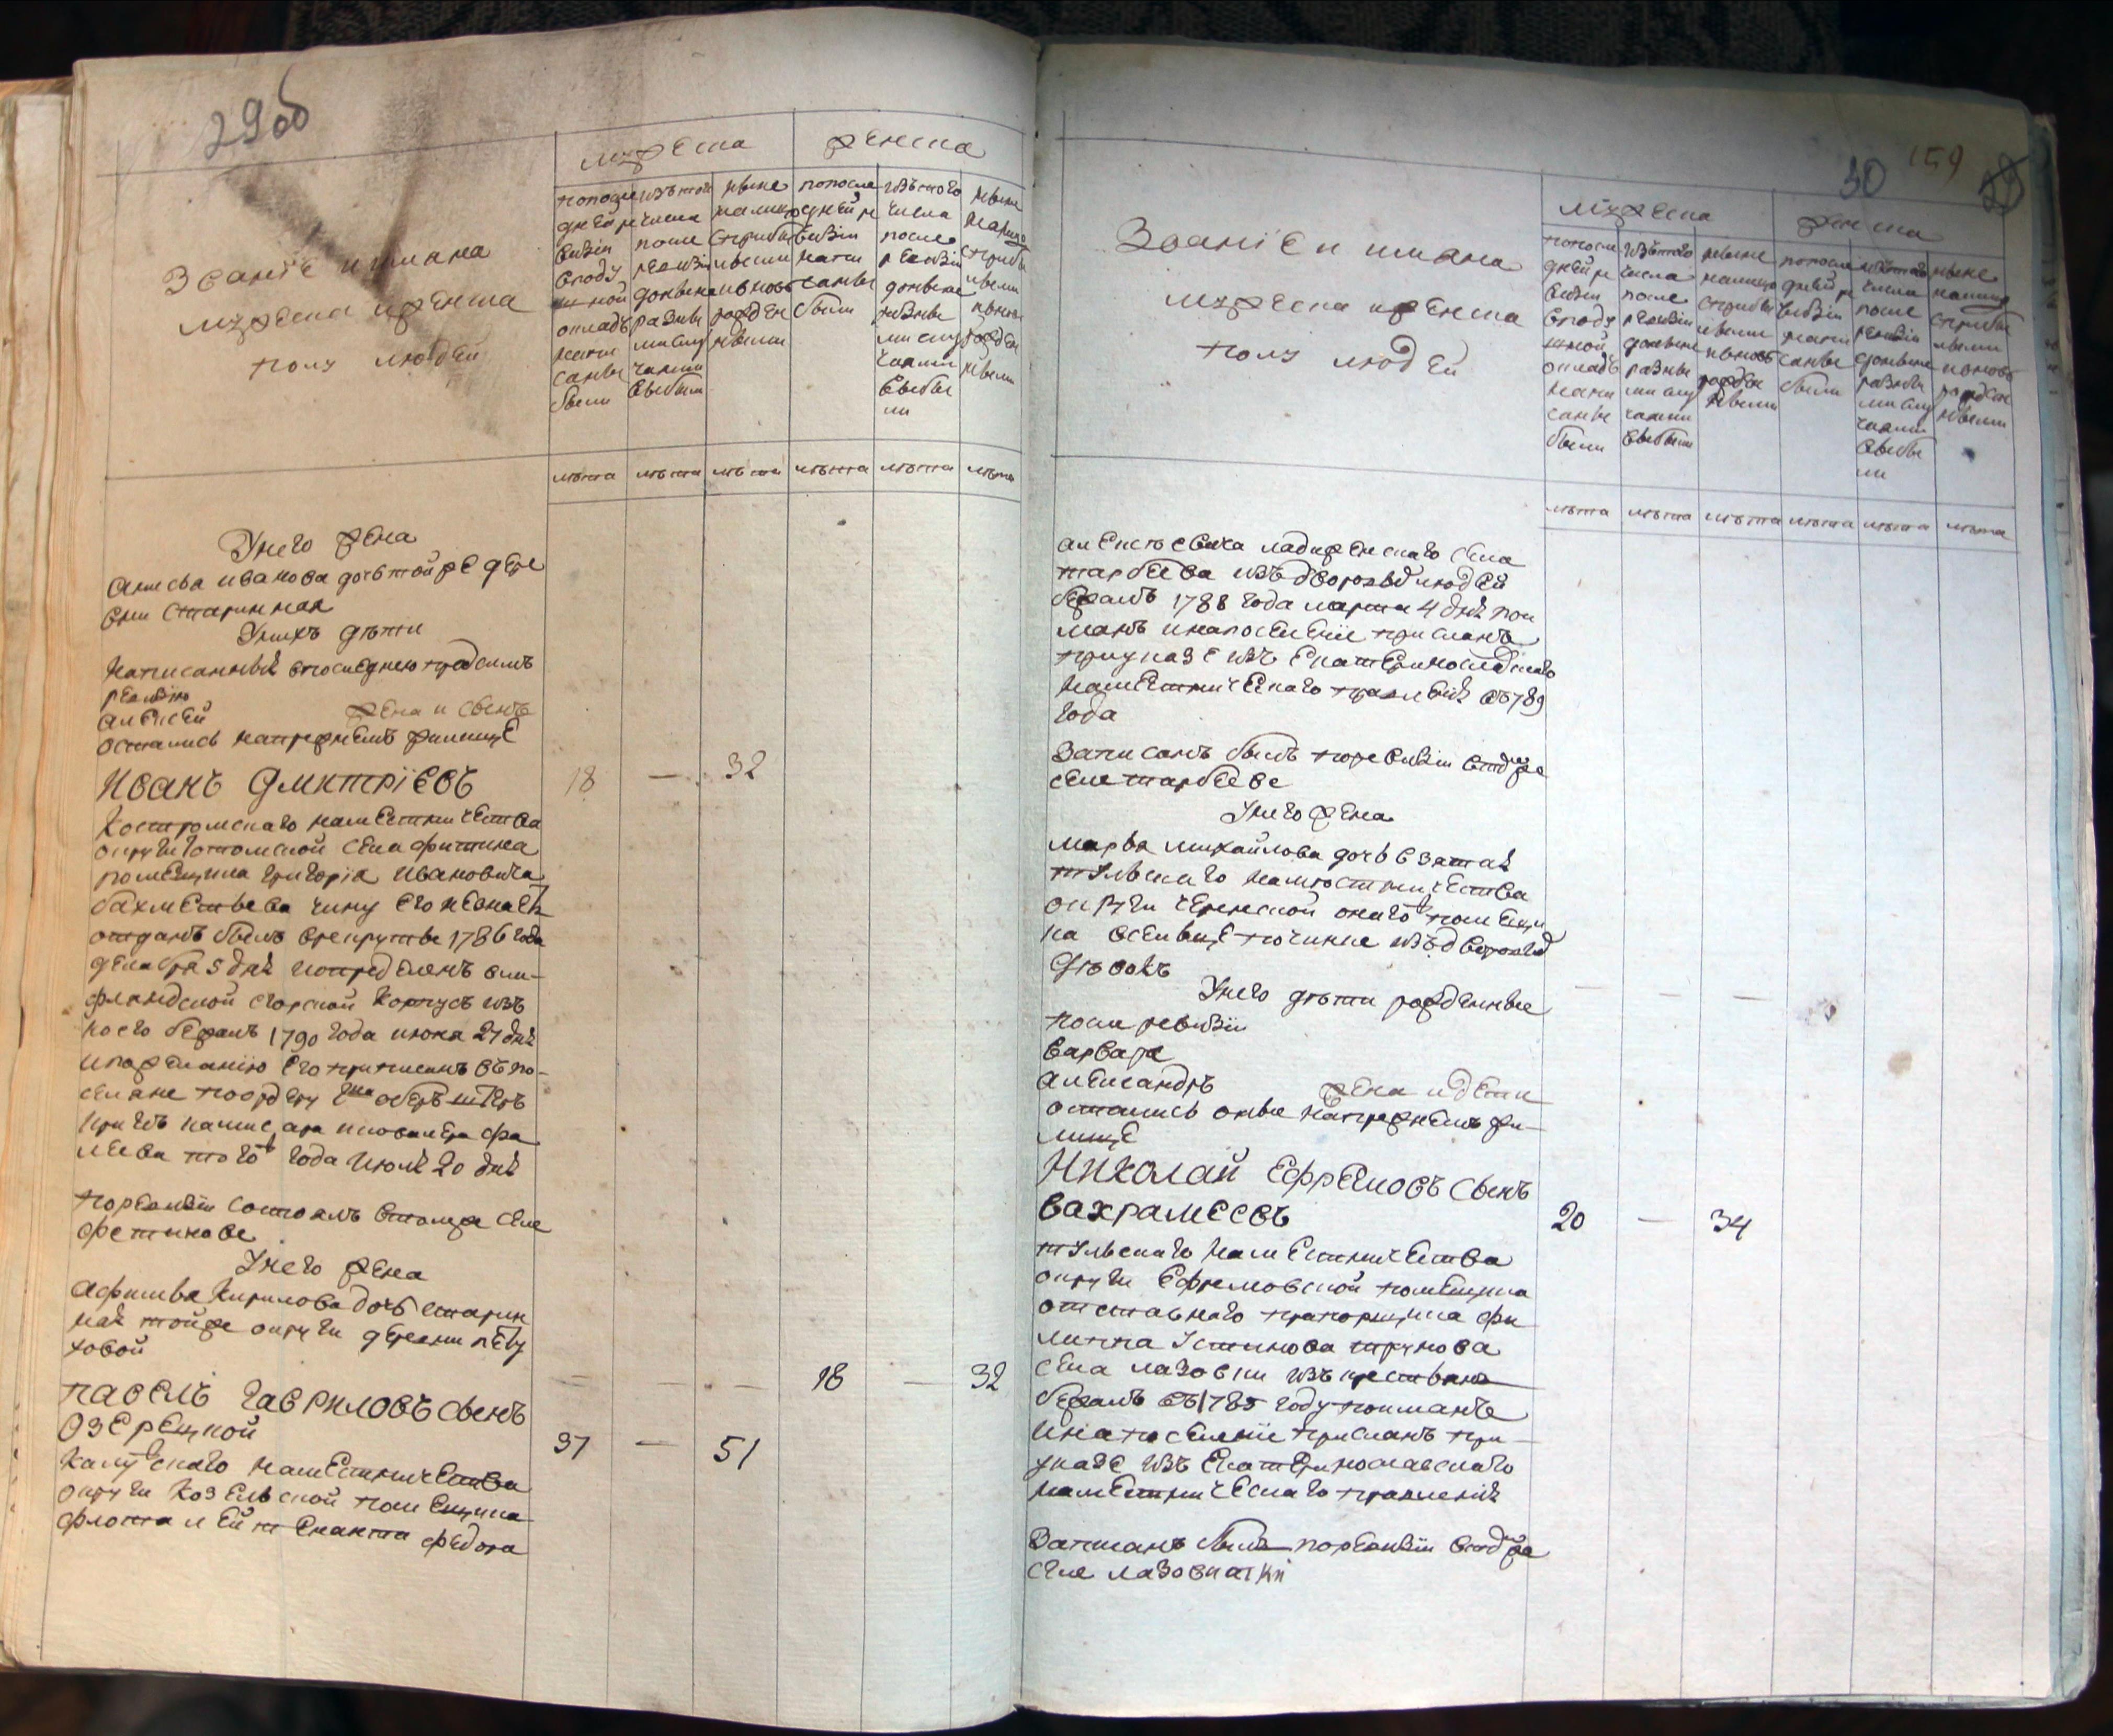 29об
Званïе и имяна
мужеска и женска
полу людей
мужеска
женска
по после
дней ре
визïи
в поду
шной
окладъ
напи
саны
были
изъ того
числа
после
ревизïи
до ныне
разны
ми слу
чаями
выбыли
ныне
на лицо
с прибы
лыми
и вновь
рожден
ными
по после
дней ре
визïи
напи
саны
были
изъ того
числа
после
ревизïи
до ныне
разны
ми слу
чаями
выбы
ли
ныне
на лицо
с прибы
лыми
и вновь
рожден
ными
лѣта лѣта лѣта лѣта лѣта лѣта
У него жена
Анисья Иванова дочь той же дере
вни старинная
У нихъ дѣти
написанныя в последнею пред симъ
ревизïю
Алексей жена и сынъ
остались на прежнемъ жилище
Иванъ Дмитрïевъ 18 — 32
Костромскаго наместничества
округи
помещика Григорïя Ивановича
Бахметьева чину его не знаетъ
отданъ былъ в рекруты 1786 года
декабря 5 дня и определенъ в ли-
фляндской егорской корпусъ изъ
коего бежалъ 1790 года июня 27 дня
и по желанïю его приписанъ въ по-
селяне по ордеру гна оберъ штеръ
кригсъ камисара и ковалера Фа
леева того года июля 20 дня
по ревизïи состоялъ в томъ же селе
Фетинове
У него жена
Афимья Кирилова дочь старин
ная той же округи деревни Пету
ховой — — — 18 — 32
Павелъ Гавриловъ сынъ
Озерецкой 37 — 51
Калужскаго наместничества
округи Козельской помещика
флота лейтенанта Федора
30 159
Званïе и имяна
мужеска и женска
полу людей
мужеска
женска
по после
дней ре
визïи
в поду
шной
окладъ
напи
саны
были
изъ того
числа
после
ревизïи
до ныне
разны
ми слу
чаями
выбыли
ныне
на лицо
с прибы
лыми
и вновь
рожден
ными
по после
дней ре
визïи
напи
саны
были
изъ того
числа
после
ревизïи
до ныне
разны
ми слу
чаями
выбы
ли
ныне
на лицо
с прибы
лыми
и вновь
рожден
ными
лѣта лѣта лѣта лѣта лѣта лѣта
Алексѣевича Ладыженскаго села
Тарбеева изъ дворовыхъ людей
бежалъ 1788 года марта 4 дня пои
манъ и на поселенïе присланъ
при указе изъ Екатеринославскаго
наместническаго правленïя въ 789
года
Записанъ былъ по ревизïи в томъ же
селе Тарбееве
У него жена
Марья Михайлова дочь взятая
Тульскаго намѣстничества
округи Чернской онаго помещи
ка в сельце Починке изъ дворовыхъ
дѣвокъ
У него дѣти рожденные
после ревизïи — — —
Варвара
Александръ жена и дети
остались оные на прежнемъ жи-
лище
Николай Ефремовъ сынъ
Вахрамеевъ 20 — 34
Тульскаго наместничества
округи Ефремовской помещика
отставнаго прапорщика Фи
липпа Устинова
села Лазовки изъ крестьянъ
бежалъ въ 1785 году поиманъ
и на поселенïе присланъ при
указе изъ Екатеринославскаго
наместническаго правленïя
Записанъ былъ по ревизïи в томъ же
селе